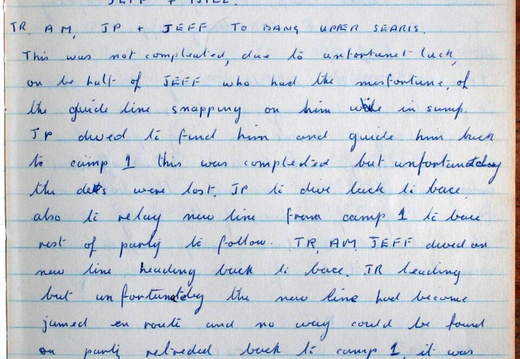 JEFF + BILL.
TR. AM, JP + JEFF TO BANG UPPER SEARIS.
This was not compleated, due to unfortunet luck,
on be half of JEFF who had the misfortune, of
the guide line snapping on him while in sump
JP dived to find him and guide him back
to camp 1 this was compleated but unfortunatley
the were lost. JP to dive back to base
also to relay new line from camp 1 to base
rest of party to follow. TR, AM, JEFF dived on
new line heading back to base. TR leading
but unfortunatley the new line had become
jamed en route and no way could be found
on party retreded back to camp 1 it was